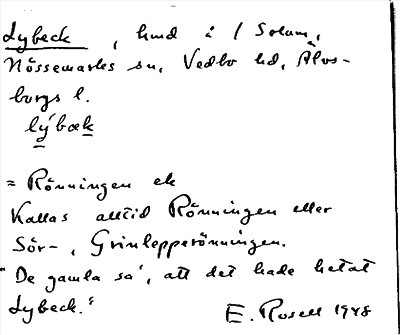 Lybeck, hmd å / Solum,
Nössemarks sn, Vedbo hd, Älvs-
borgs l.
lýbæk
= Rönningen ek
Kallas alltid Rönningen eller
Sör-, Grinlepperönningen.
"De gamla sa', att det hade hetat
Lybeck."
E. Rosell 1948